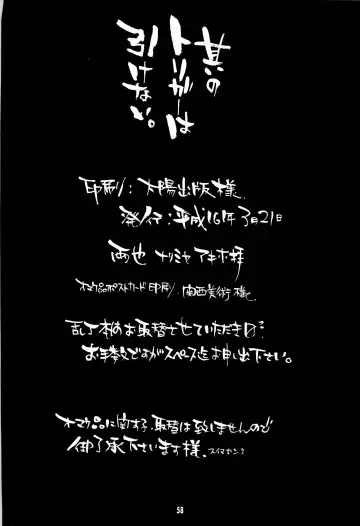 其の
トリガーは
引けない。
印刷:太陽出版様.
発行:平成16年3月21日
両也 ナリミヤ アキホ拝
オマケ品ポストカード印刷.関西美術様
乱丁本のお取替させていただき
お手数ですがスペース迄お申し出下さい。
オマケ品に関する.取替は致しませんので
御了承下さいます様.スイマセン?
58